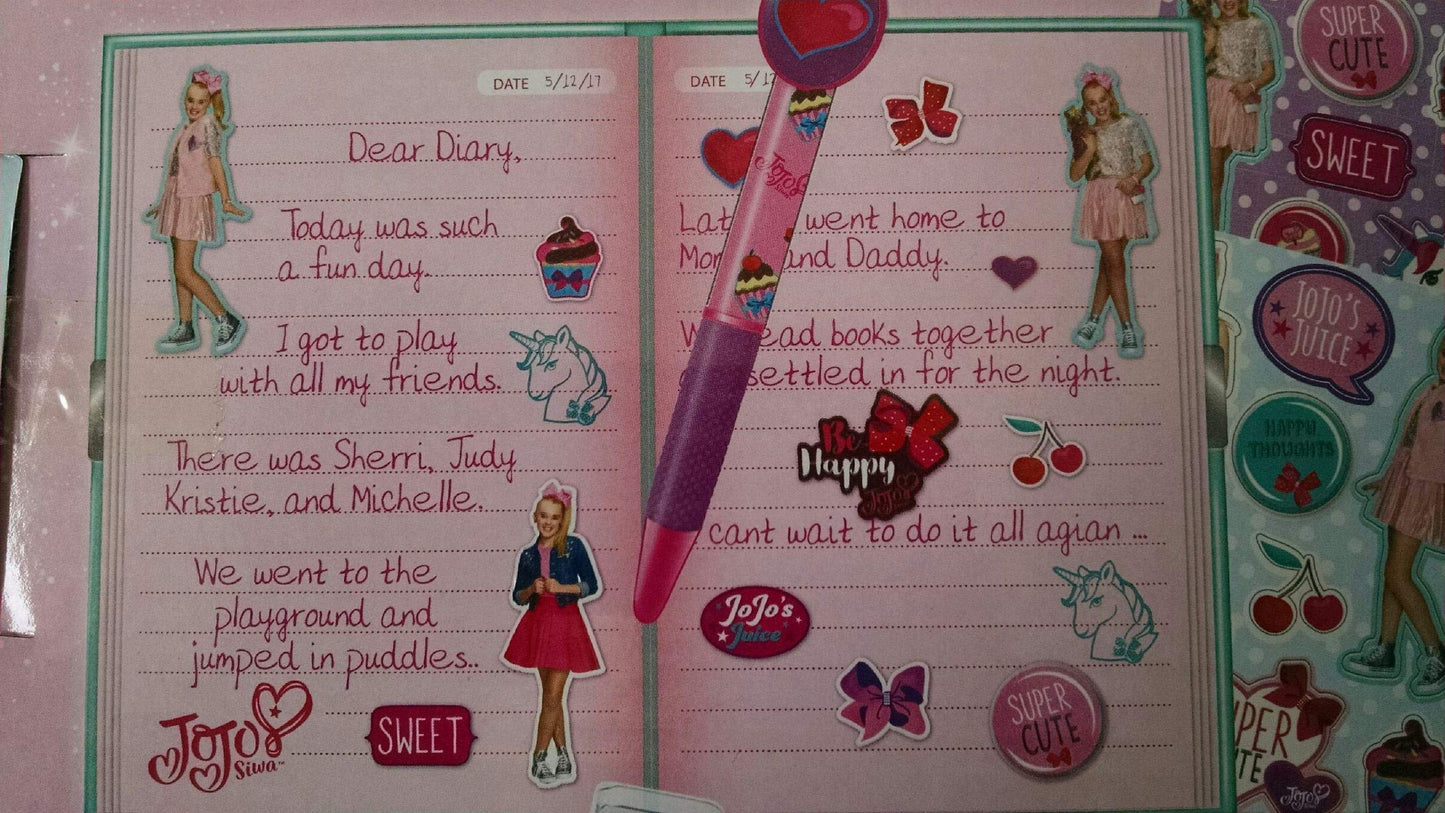 DATE 5/12/17
Dear Diary,
Today was such
a fun day.
I got to play
with all my friends.
There was Sherri, Judy
Kristie, and Michelle.
We went to the
playground and
jumped in puddles..
JoJo
Siwa™
SWEET
DATE
JoJo
went home to
and Daddy.
books together
settled in for the night.
Be
Happy
JoJo
cant wait to do it all agian ...
JoJo's
Juice
SUPER
CUTE
SUPER
CUTE
SWEET
JOJO'S
JUICE
HAPPY
THOUGHTS
JoJo